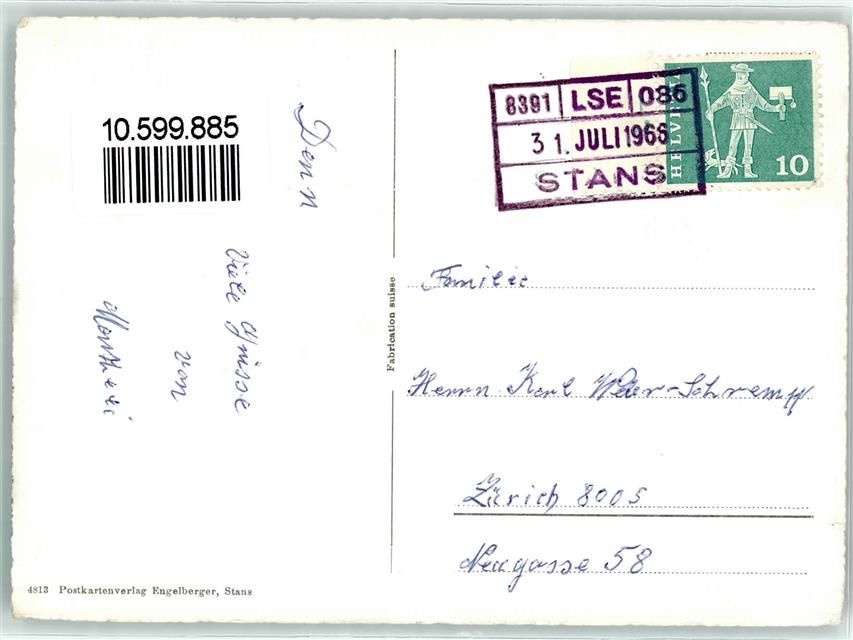 10.599.885
Viele Grüsse
von
8391 LSE 086
31. JULI 1966
STANS
HELVETIA
10
Fabrication suisse
Familie
Herrn Karl Weber-Schrempf
Zürich 8005
Neugasse 58
4813 Postkartenverlag Engelberger, Stans